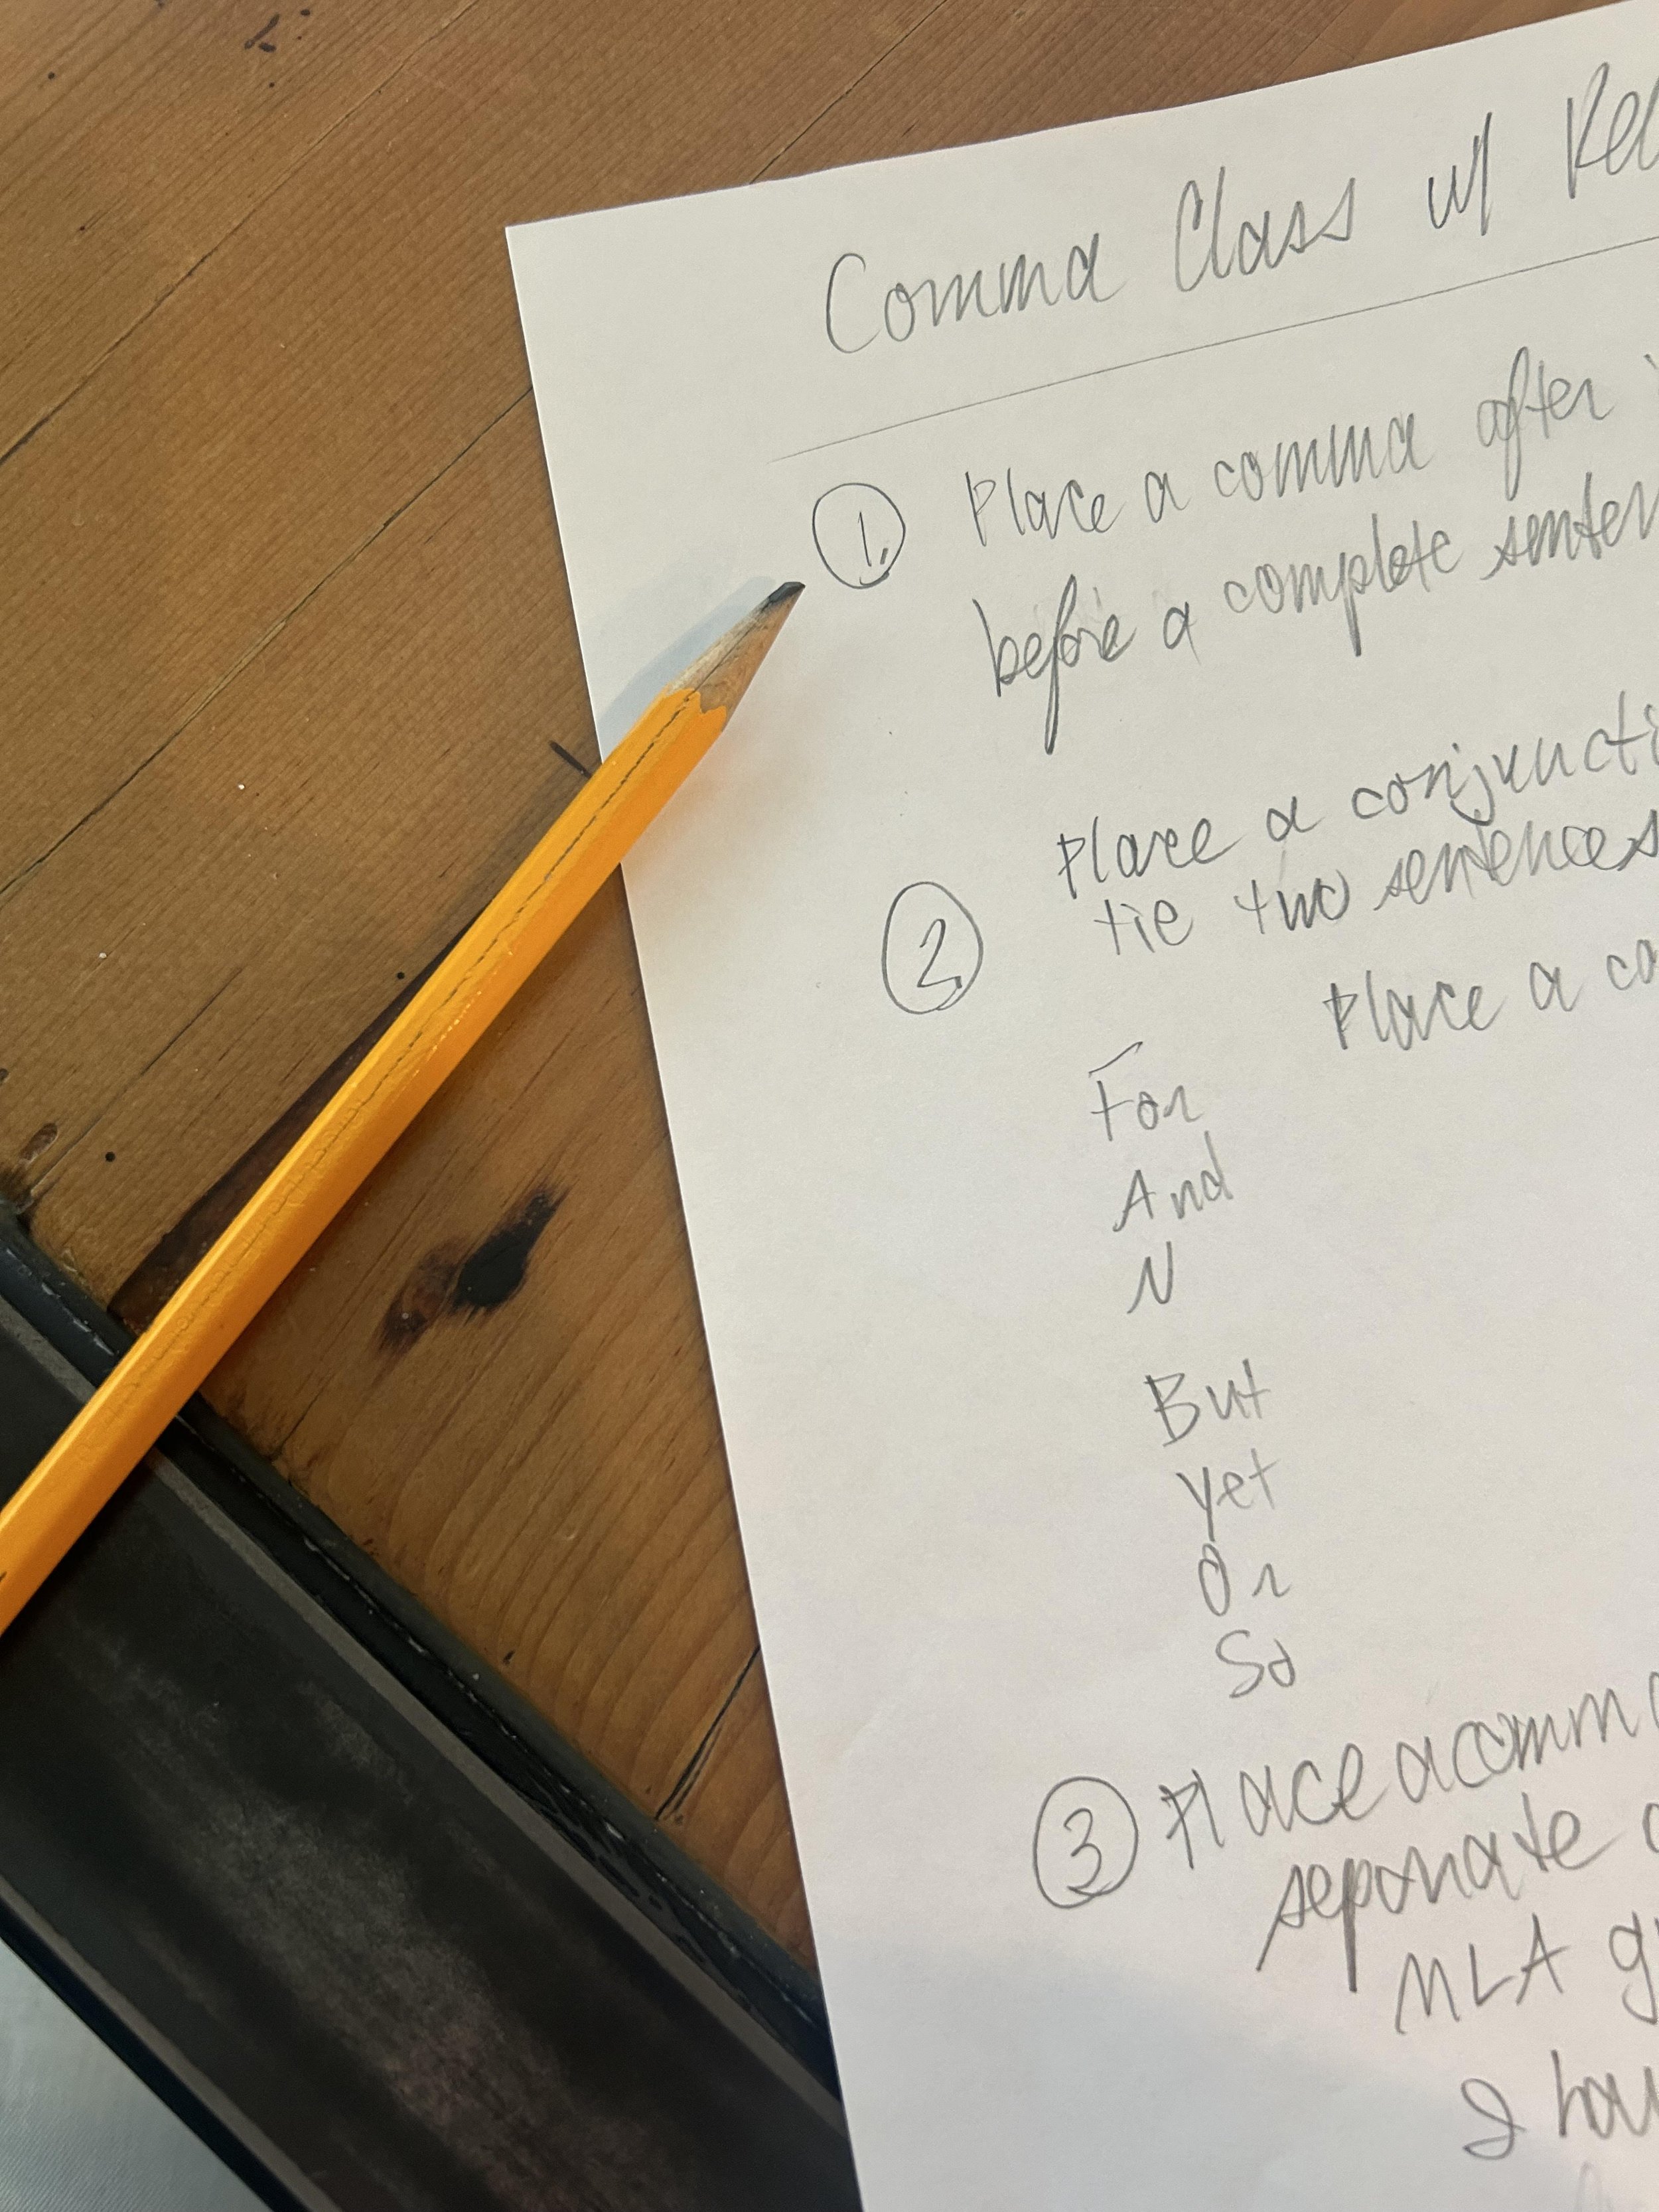 Comma Class w/ Kel
1. Place a comma after
before a complete senten
2. Place a conjuncti
tie two sentences
Place a co
For
And
N
But
Yet
Or
So
3 Place a comma
separate
MLA g
I hav